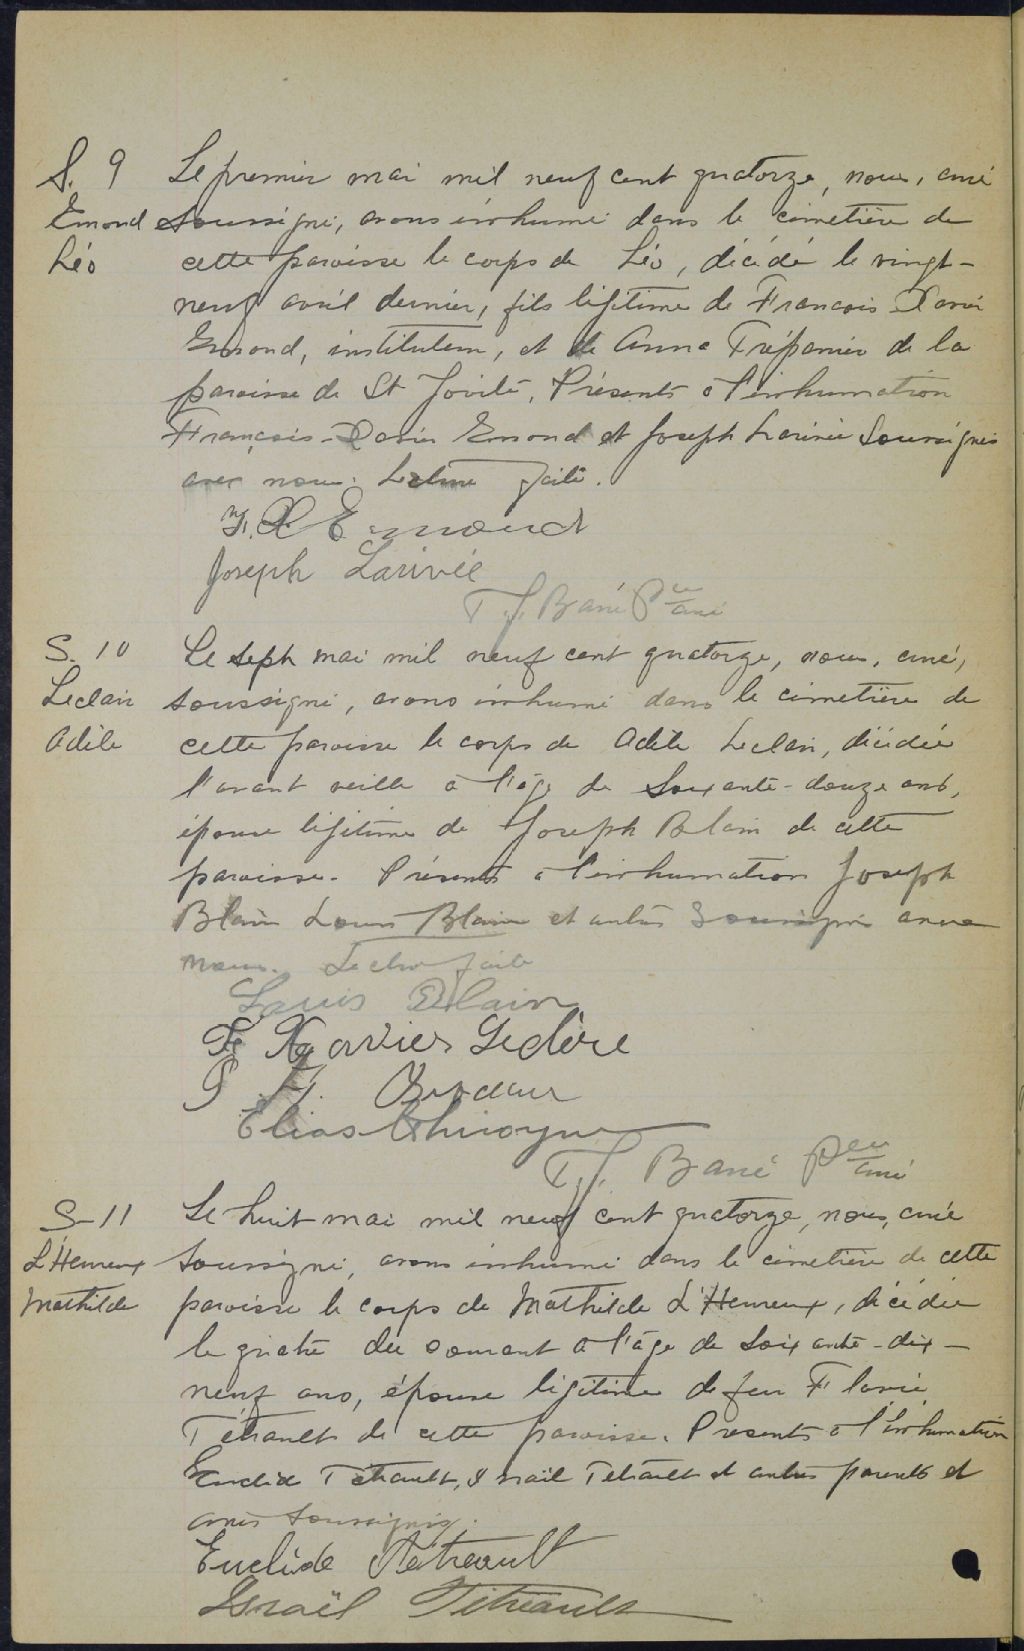 S. 9
Emond
Léo
Le premier mai mil neuf cent quatorze, nous, curé
soussigné, avons inhumé dans le cimetière de
cette paroisse le corps de Léo, décédé le vingt-
neuf avril dernier, fils légitime de François Xavier
Emond, instituteur, et de Anna Trépanier de la
paroisse de St Jovite. Présents à l'inhumation
François-Xavier Emond et Joseph Larivée soussignés
avec nous. Lecture faite.
F. X. Emond
Joseph Larivée
T. J. Baré Ptre curé
S. 10
Leclair
Adèle
Le sept mai mil neuf cent quatorze, nous, curé,
soussigné, avons inhumé dans le cimetière de
cette paroisse le corps de Adèle Leclair, décédée
l'avant veille à l'âge de soixante-douze ans,
épouse légitime de Joseph Blain de cette
paroisse. Présents à l'inhumation Joseph
Blain Louis Blain et autres soussignés avec
nous. Lecture faite
Louis Blain
F. Xavier Leclère
P. H.
Elias
T. J. Baré Ptre curé
S-11
L'Heureux
Mathilde
Le huit mai mil neuf cent quatorze, nous, curé
soussigné, avons inhumé dans le cimetière de cette
paroisse le corps de Mathilde L'Heureux, décédée
le quatre du courant à l'âge de soixante-dix-
neuf ans, épouse légitime de feu Flavie
Tétrault de cette paroisse. Présents à l'inhumation
Euclide Tétrault, Israël Tétrault et autres parents et
amis soussignés.
Euclide Tétreault
Israël Tétreault